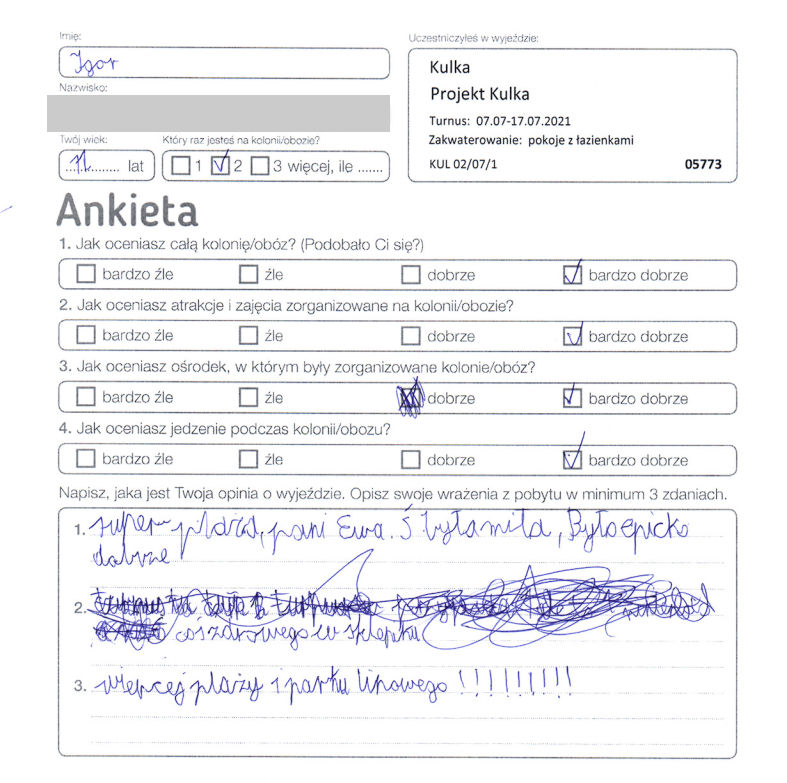 Imię:
Igor
Nazwisko:
Twój wiek:
11 lat
Który raz jesteś na kolonii/obozie?
1 2 3 więcej, ile .......
Uczestniczyłeś w wyjeździe:
Kulka
Projekt Kulka
Turnus: 07.07-17.07.2021
Zakwaterowanie: pokoje z łazienkami
KUL 02/07/1 05773
Ankieta
1. Jak oceniasz całą kolonię/obóz? (Podobało Ci się?)
bardzo źle źle dobrze bardzo dobrze
2. Jak oceniasz atrakcje i zajęcia zorganizowane na kolonii/obozie?
bardzo źle źle dobrze bardzo dobrze
3. Jak oceniasz ośrodek, w którym były zorganizowane kolonie/obóz?
bardzo źle źle dobrze bardzo dobrze
4. Jak oceniasz jedzenie podczas kolonii/obozu?
bardzo źle źle dobrze bardzo dobrze
Napisz, jaka jest Twoja opinia o wyjeździe. Opisz swoje wrażenia z pobytu w minimum 3 zdaniach.
1. super plaża, pani Ewa. Ś była miła, Było epicko
dobrze
2.
coś zdrowego w sklepku
3. więcej plaży i parku linowego !!!!!!!!!